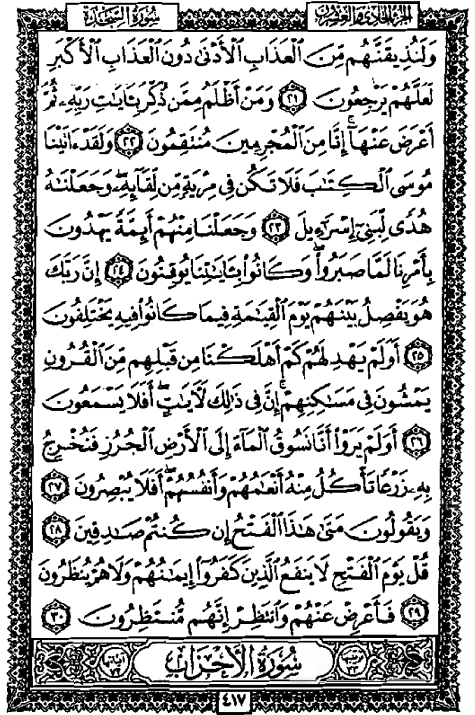 الجزء الحادي والعشرون سُورَةُ السَّجْدَةِ
وَلَنُذِيقَنَّهُم مِّنَ ٱلْعَذَابِ ٱلْأَدْنَىٰ دُونَ ٱلْعَذَابِ ٱلْأَكْبَرِ
لَعَلَّهُمْ يَرْجِعُونَ ٢١ وَمَنْ أَظْلَمُ مِمَّن ذُكِّرَ بِـَٔايَـٰتِ رَبِّهِۦ ثُمَّ
أَعْرَضَ عَنْهَآ ۚ إِنَّا مِنَ ٱلْمُجْرِمِينَ مُنتَقِمُونَ ٢٢ وَلَقَدْ ءَاتَيْنَا
مُوسَى ٱلْكِتَـٰبَ فَلَا تَكُن فِى مِرْيَةٍ مِّن لِّقَآئِهِۦ ۖ وَجَعَلْنَـٰهُ
هُدًى لِّبَنِىٓ إِسْرَٰٓءِيلَ ٢٣ وَجَعَلْنَا مِنْهُمْ أَئِمَّةً يَهْدُونَ
بِأَمْرِنَا لَمَّا صَبَرُوا۟ ۖ وَكَانُوا۟ بِـَٔايَـٰتِنَا يُوقِنُونَ ٢٤ إِنَّ رَبَّكَ
هُوَ يَفْصِلُ بَيْنَهُمْ يَوْمَ ٱلْقِيَـٰمَةِ فِيمَا كَانُوا۟ فِيهِ يَخْتَلِفُونَ
٢٥ أَوَلَمْ يَهْدِ لَهُمْ كَمْ أَهْلَكْنَا مِن قَبْلِهِم مِّنَ ٱلْقُرُونِ
يَمْشُونَ فِى مَسَـٰكِنِهِمْ ۚ إِنَّ فِى ذَٰلِكَ لَـَٔايَـٰتٍ ۖ أَفَلَا يَسْمَعُونَ
٢٦ أَوَلَمْ يَرَوْا۟ أَنَّا نَسُوقُ ٱلْمَآءَ إِلَى ٱلْأَرْضِ ٱلْجُرُزِ فَنُخْرِجُ
بِهِۦ زَرْعًا تَأْكُلُ مِنْهُ أَنْعَـٰمُهُمْ وَأَنفُسُهُمْ ۖ أَفَلَا يُبْصِرُونَ ٢٧
وَيَقُولُونَ مَتَىٰ هَـٰذَا ٱلْفَتْحُ إِن كُنتُمْ صَـٰدِقِينَ ٢٨
قُلْ يَوْمَ ٱلْفَتْحِ لَا يَنفَعُ ٱلَّذِينَ كَفَرُوٓا۟ إِيمَـٰنُهُمْ وَلَا هُمْ يُنظَرُونَ
٢٩ فَأَعْرِضْ عَنْهُمْ وَٱنتَظِرْ إِنَّهُم مُّنتَظِرُونَ ٣٠
سُورَةُ الْأَحْزَابِ
٤١٧